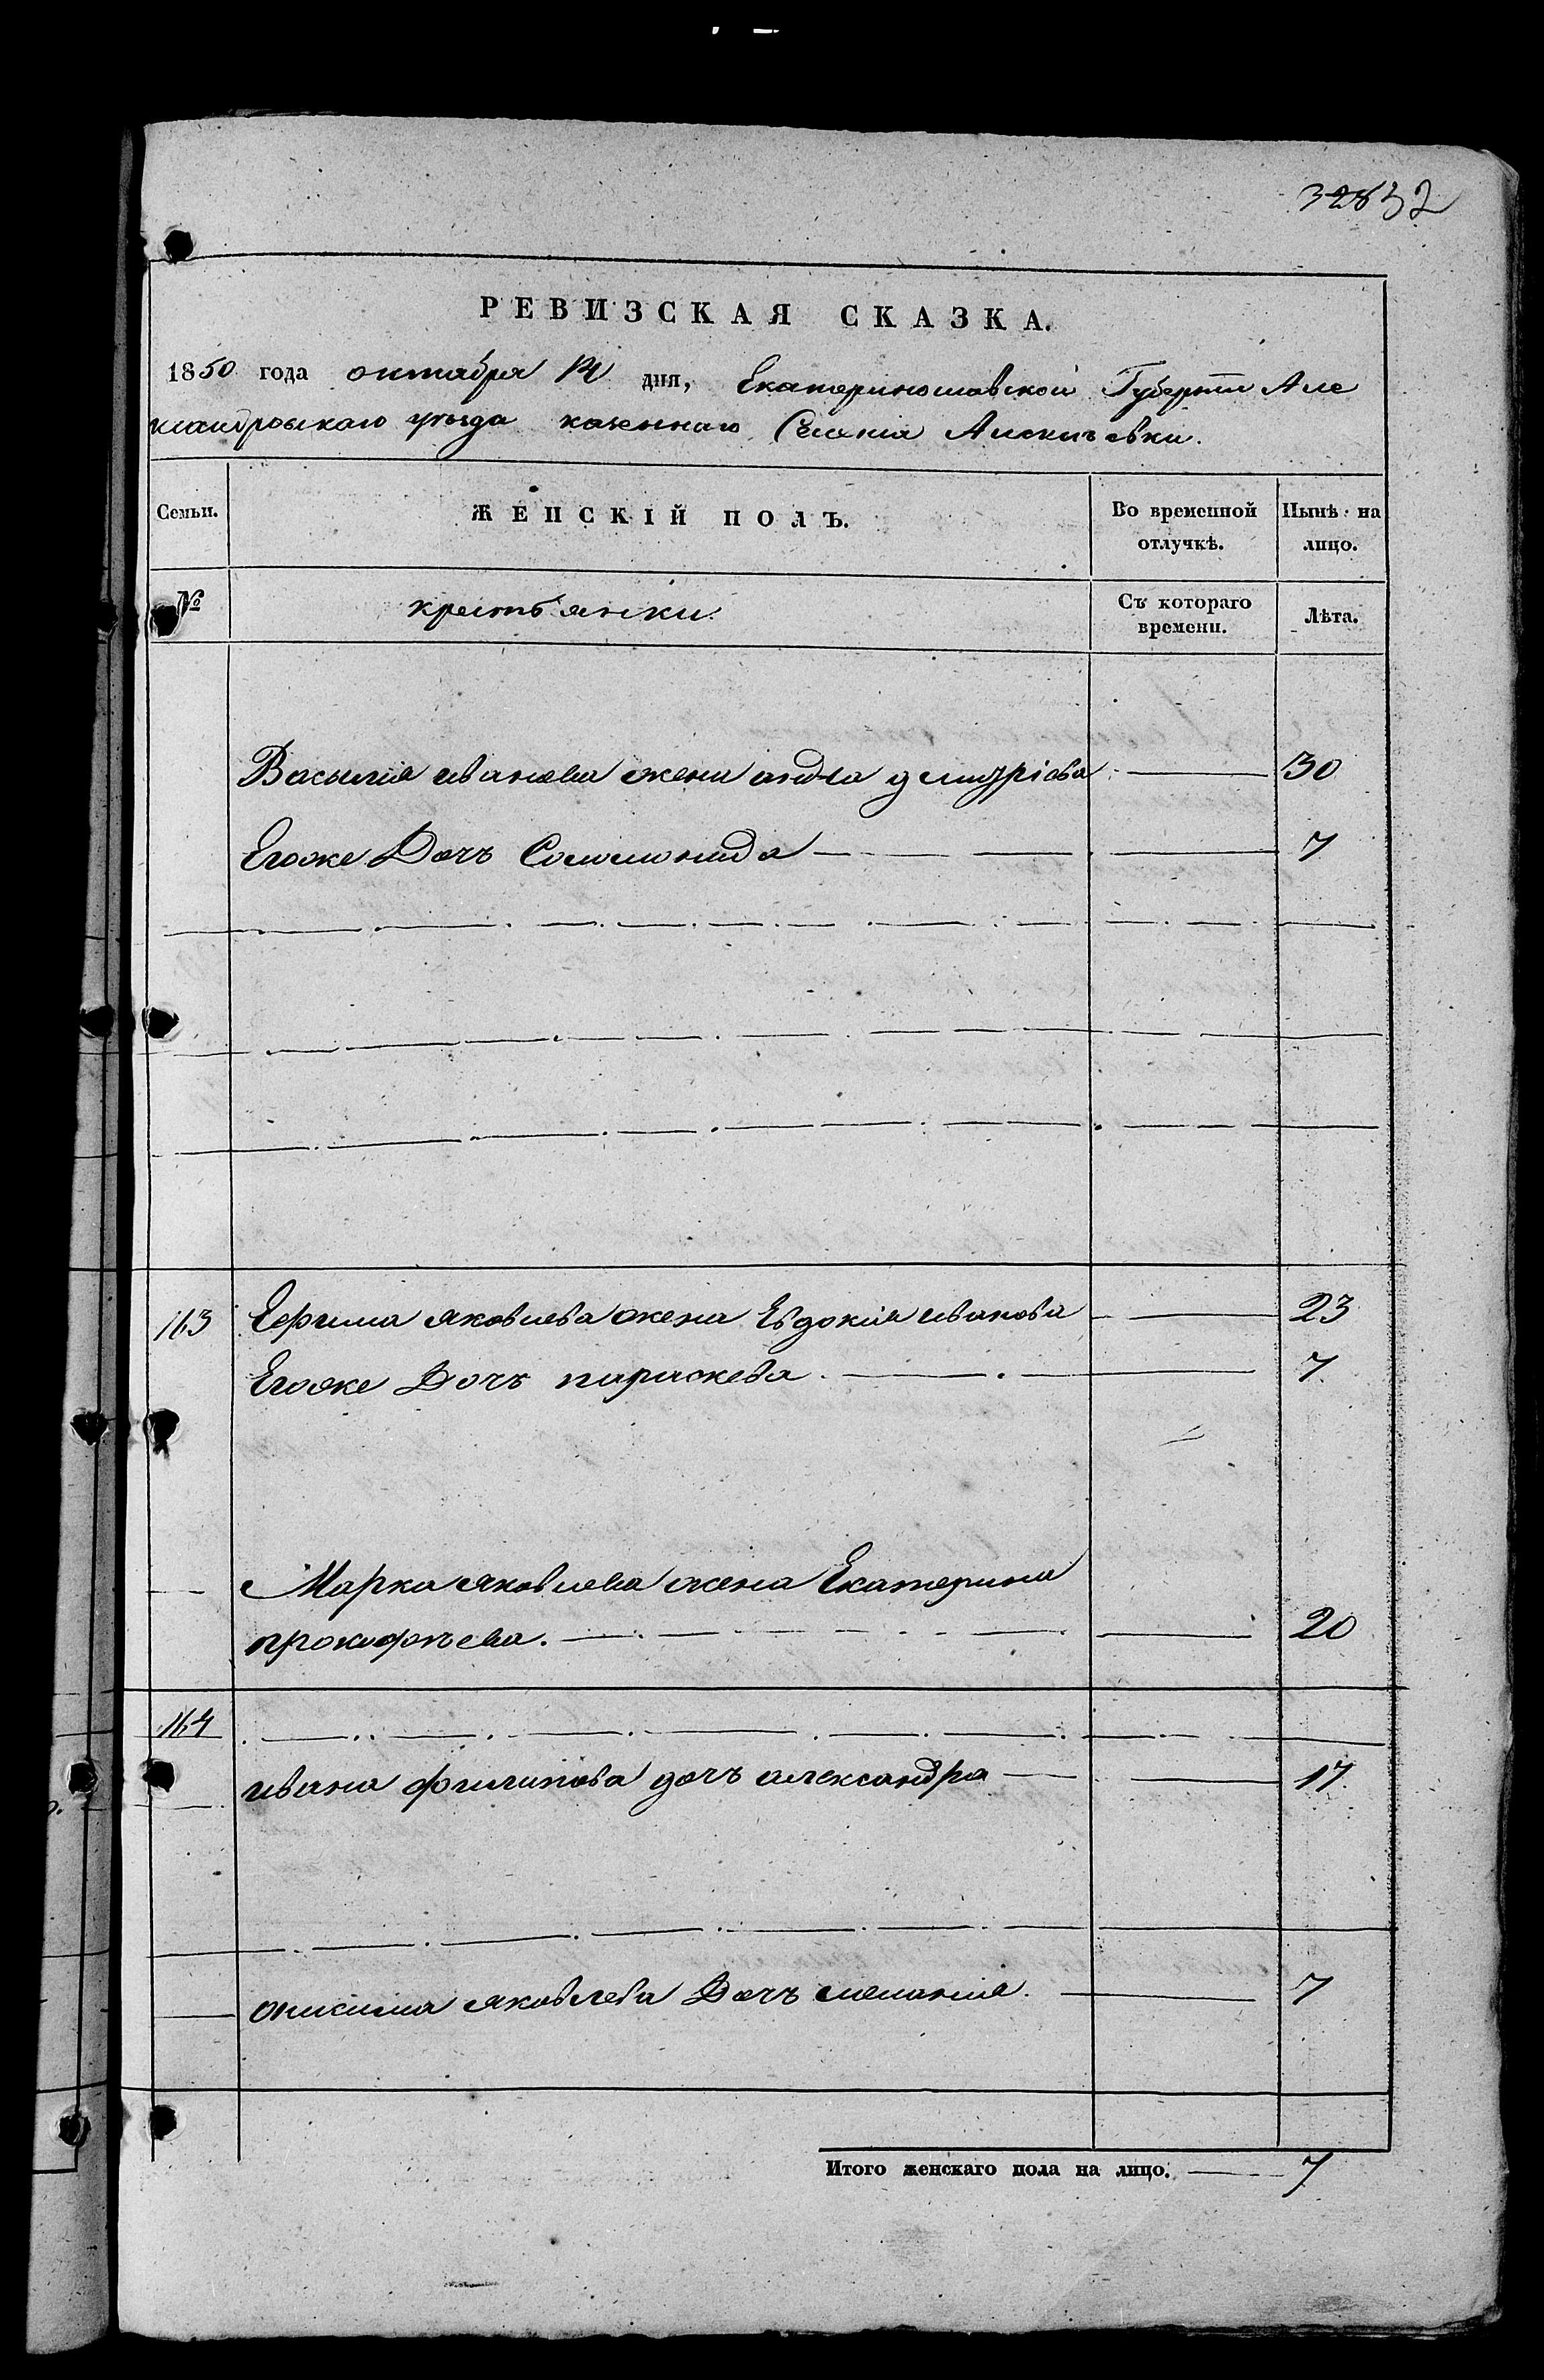 32832
РЕВИЗСКАЯ СКАЗКА.
1850 года октября 14 дня, Екатеринославской Губернии Але
ксандровскаго уезда казеннаго Селения
Семьи. ЖЕНСКІЙ ПОЛЪ. Во временной отлучкѣ. Нынѣ на лицо.
№ крестьянки. Съ котораго времени. Лѣта.
Васылия иванова жена 30
Егоже Дочъ Соломонида 7
163 Ефима яковлева жена Евдокия иванова 23
Егоже Дочъ параскева. 7
Марка яковлева жена Екатерина
прокофъева. 20
164
ивана филипова дочъ александра 17
онисима яковлева Дочъ мелания. 7
Итого женскаго пола на лицо. 7